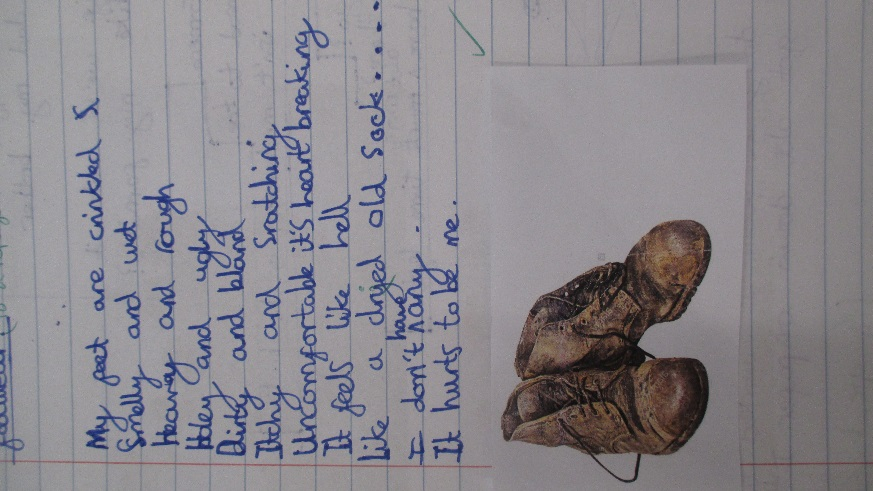 My feet are crinkled &
Smelly and wet
Heavey and rough
Holey and ugly
Dirty and bland
Itthy and Sratching
Uncomfortable it's heart breaking
It feels like hell
Like a dryed old sock.....
I don't have many.
It hurts to be me.